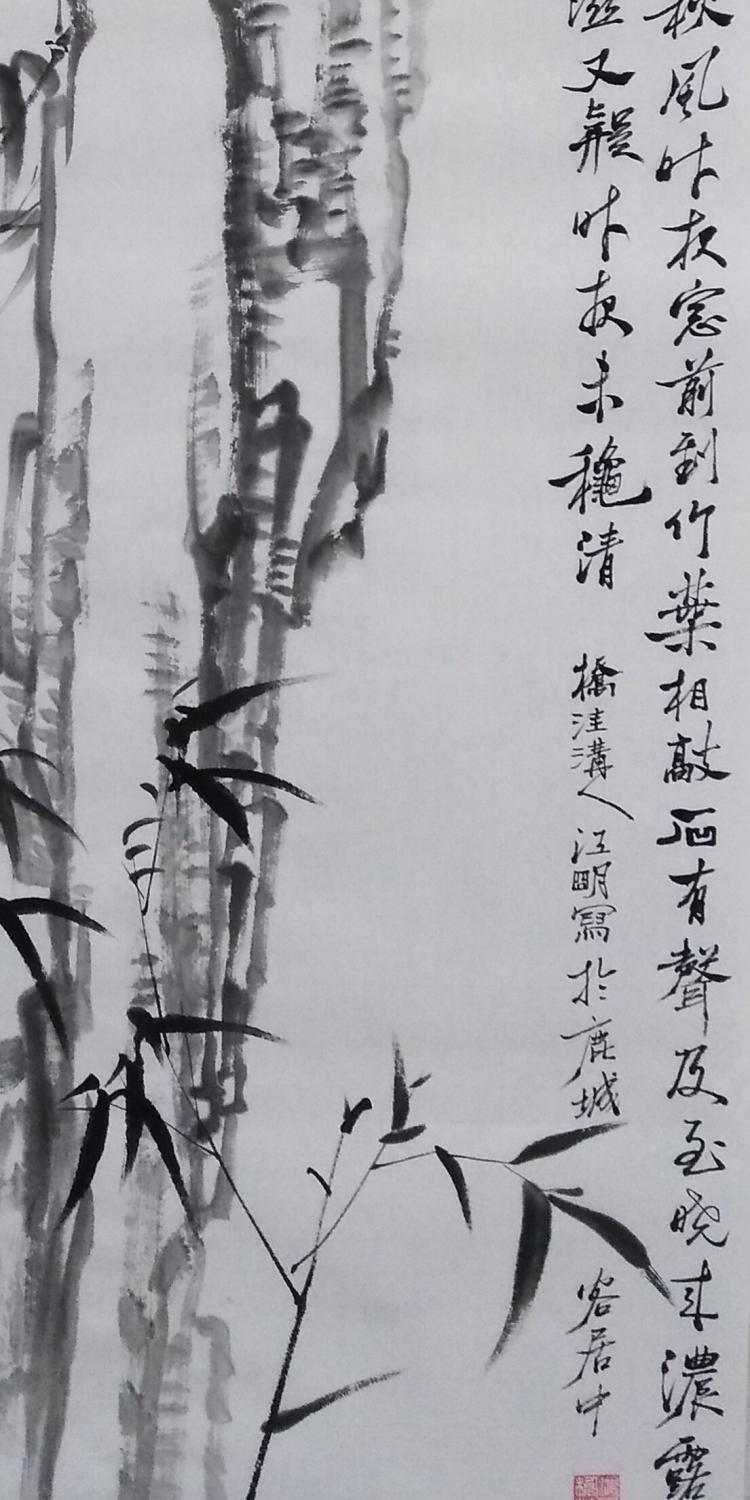 秋風昨夜窓前到竹葉相敲石有聲及至晓来濃露
溼又疑昨夜未穐清 橋洼溝人 江明寫於鹿城 客居中